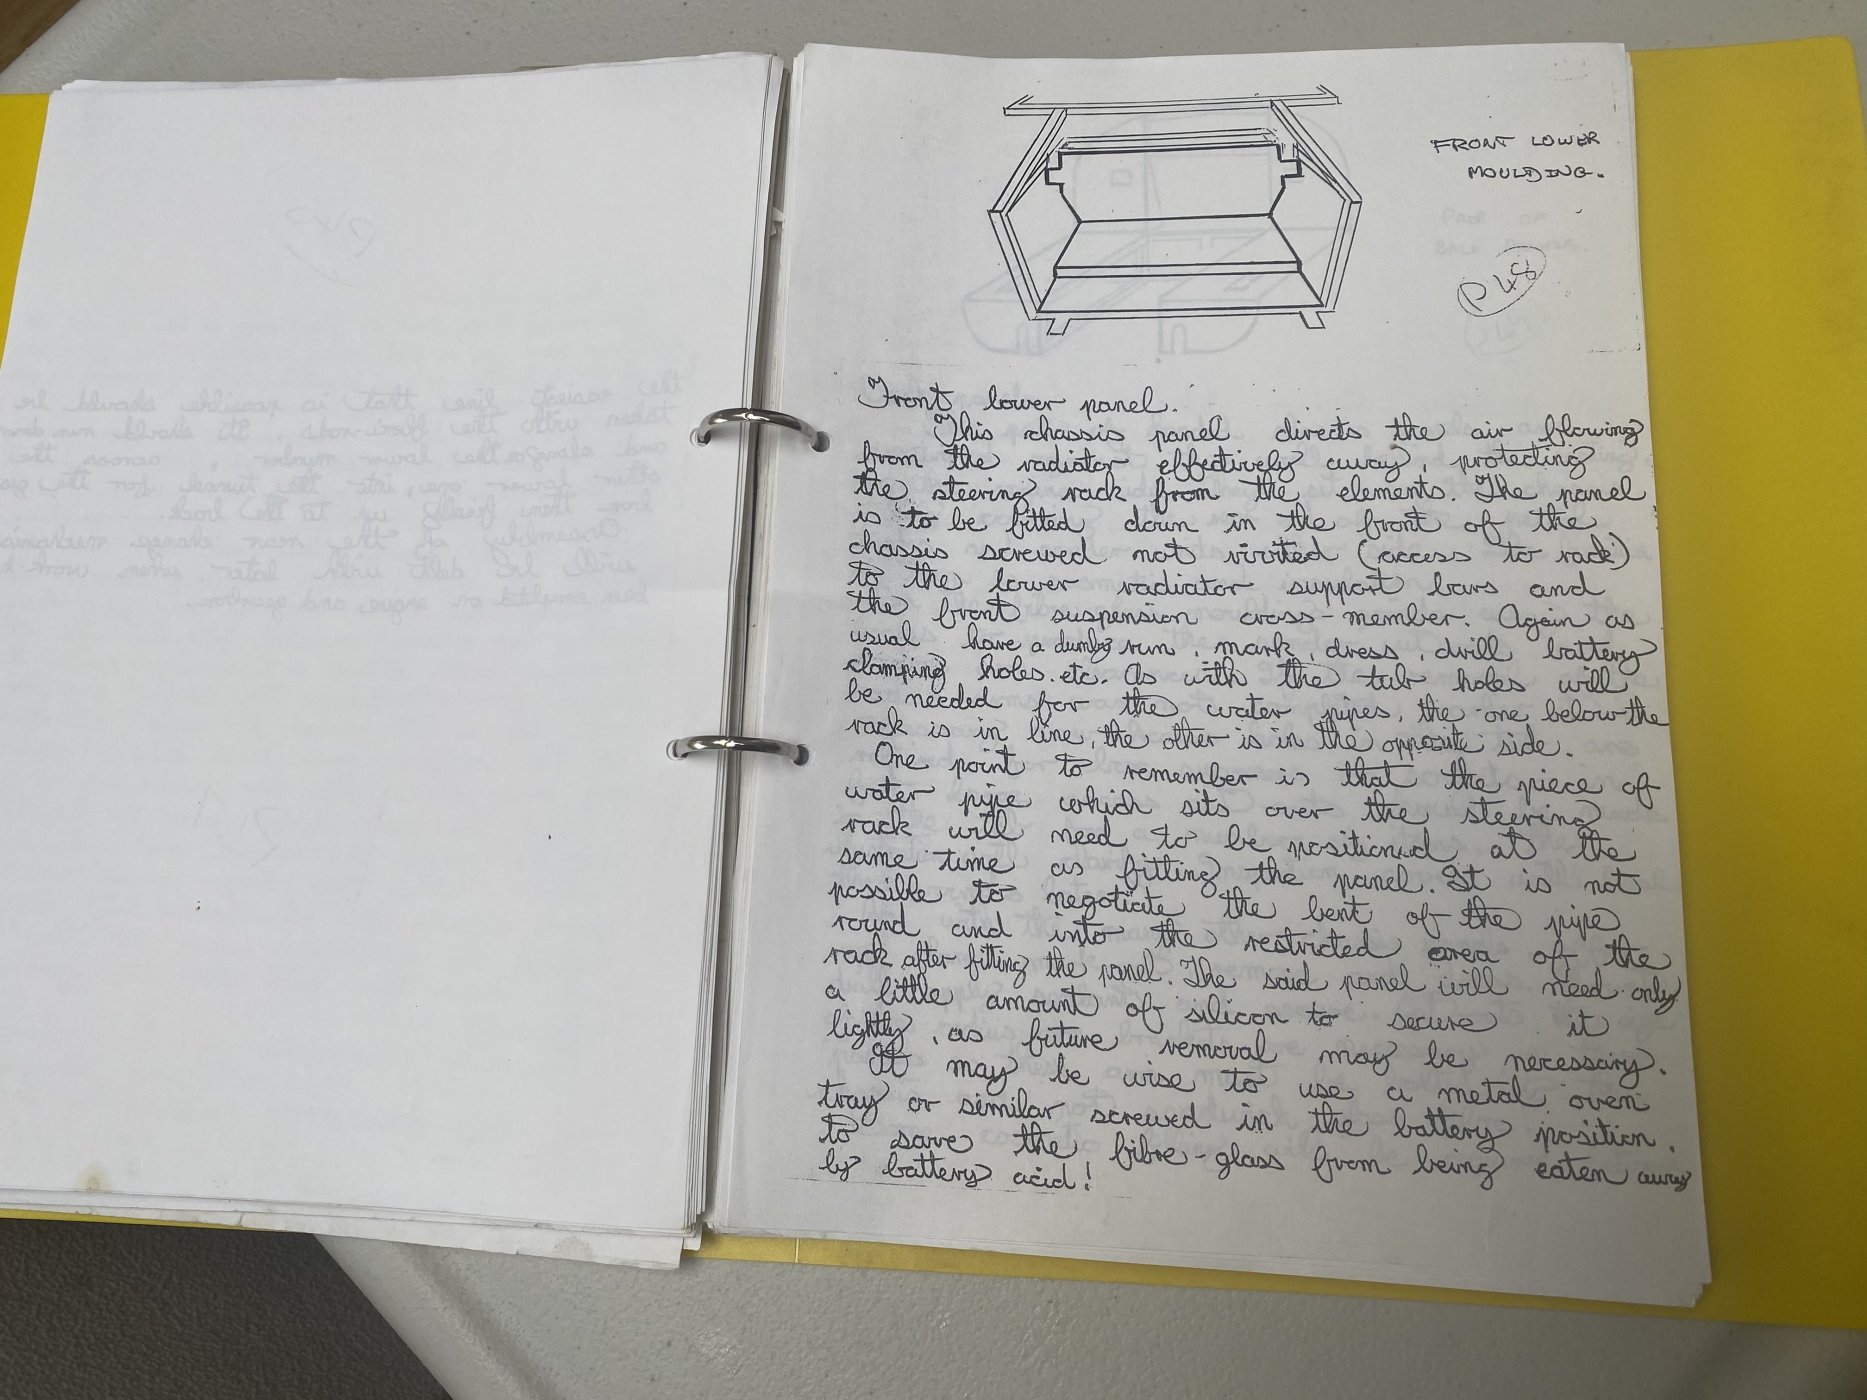 FRONT LOWER
MOULDING.
P48
Front lower panel.
This chassis panel directs the air flowing
from the radiator effectively away, protecting
the steering rack from the elements. The panel
is to be fitted down in the front of the
chassis screwed not rivited (access to rack)
to the lower radiator support bars and
the front suspension cross-member. Again as
usual have a dumby run, mark, dress, drill battery
clamping holes. etc. As with the tub holes will
be needed for the water pipes, the one below the
rack is in line, the other is in the opposite side.
One point to remember is that the piece of
water pipe which sits over the steering
rack will need to be positioned at the
same time as fitting the panel. It is not
possible to negotiate the bent of the pipe
round and into the restricted area of the
rack after fitting the panel. The said panel will need only
a little amount of silicon to secure it
lightly, as future removal may be necessary.
It may be wise to use a metal oven
tray or similar screwed in the battery position.
to save the fibre-glass from being eaten away
by battery acid!